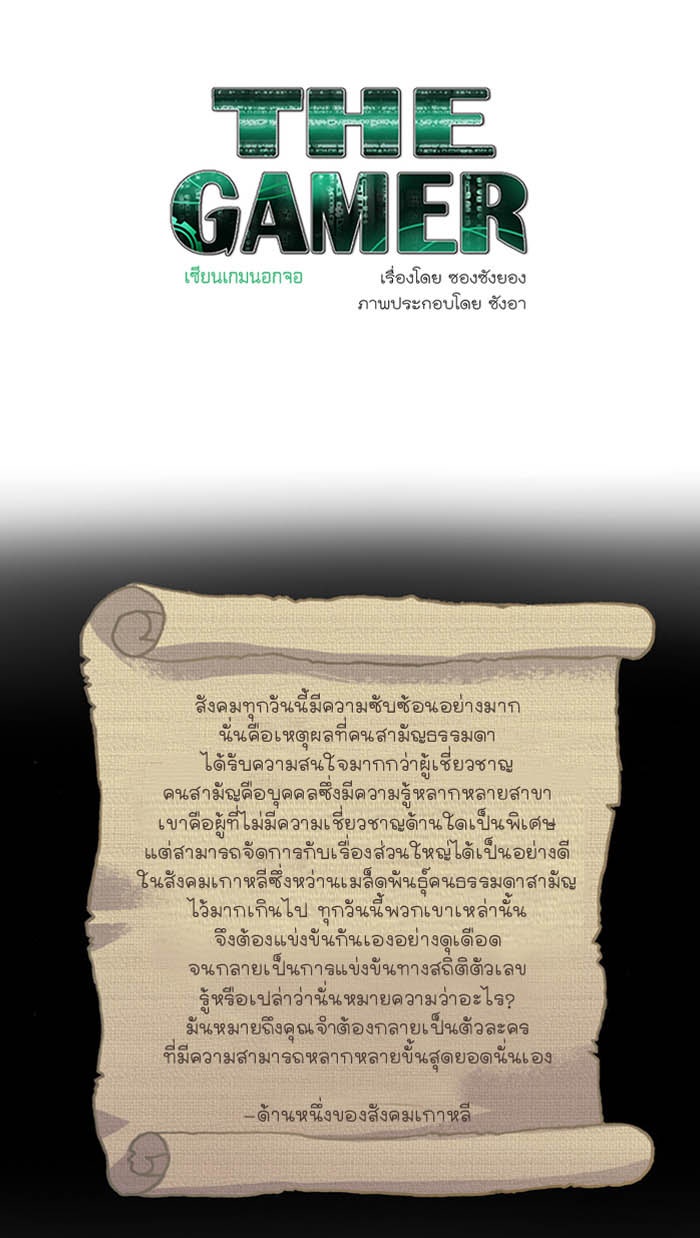 THE
GAMER
เซียนเกมนอกจอ
เรื่องโดย ซองซังยอง
ภาพประกอบโดย ซังอา
สังคมทุกวันนี้มีความซับซ้อนอย่างมาก
นั่นคือเหตุผลที่คนสามัญธรรมดา
ได้รับความสนใจมากกว่าผู้เชี่ยวชาญ
คนสามัญคือบุคคลซึ่งมีความรู้หลากหลายสาขา
เขาคือผู้ที่ไม่มีความเชี่ยวชาญด้านใดเป็นพิเศษ
แต่สามารถจัดการกับเรื่องส่วนใหญ่ได้เป็นอย่างดี
ในสังคมเกาหลีซึ่งหว่านเมล็ดพันธุ์คนธรรมดาสามัญ
ไว้มากเกินไป ทุกวันนี้พวกเขาเหล่านั้น
จึงต้องแข่งขันกันเองอย่างดุเดือด
จนกลายเป็นการแข่งขันทางสถิติตัวเลข
รู้หรือเปล่าว่านั่นหมายความว่าอะไร?
มันหมายถึงคุณจำต้องกลายเป็นตัวละคร
ที่มีความสามารถหลากหลายขั้นสุดยอดนั่นเอง
-ด้านหนึ่งของสังคมเกาหลี